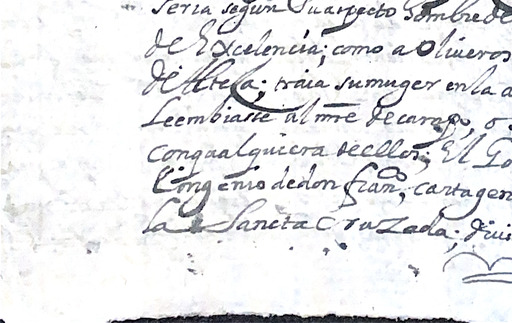 seria segun su aspecto hombre de
de Excelencia; como a Oliveros
de; traia su muger en la a
Le embiasse al mre de campo, o
con qualquiera de ellos; El Go
Con genio de don franco, Cartagen
la Sancta Cruzada; divi